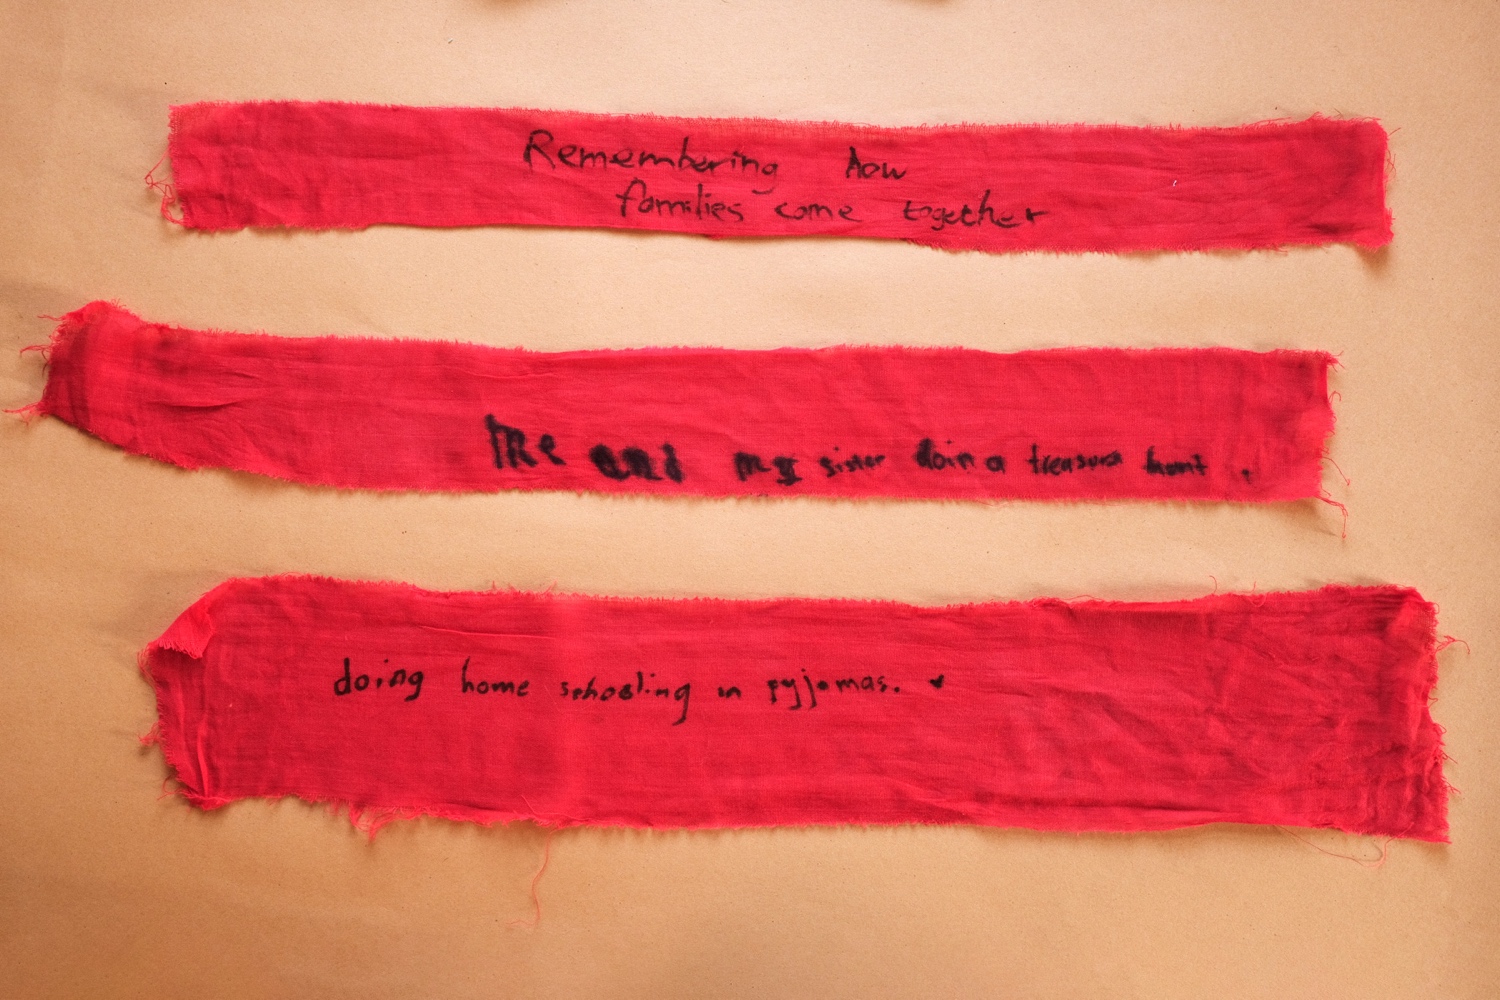 Remembering how
families come together
Me and my sister doin a treasure hunt .
doing home schooling in pyjamas.